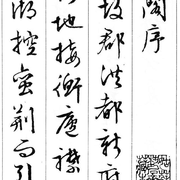 閣序
故郡洪都新府
地接衡廬襟
湖控蛮荆而引